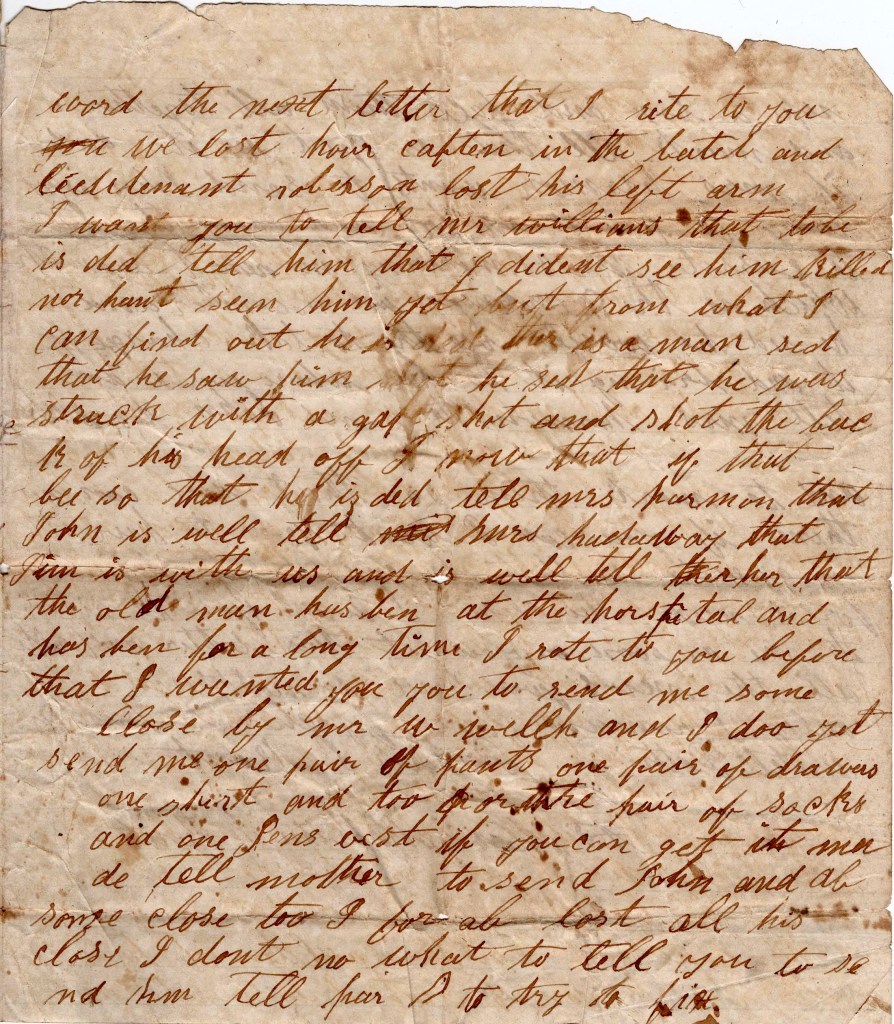 coord the next letter that I rite to you
you we lost hour capten in the batel and
lieutenant roberson lost his left arm
I want you to tell mr willians that tobe
is ded tell him that I dident see him killed
nor hant seen him yet but from what I
can find out he is ded ther is a man sed
that he saw him he sed that he was
struck with a gape shot and shot the bac
k of his head off I now that if that
bee so that he is ded tell mrs harmon that
John is well tell mrs hadaway that
Jim is with us and is well tell her that
the old man has ben at the horspital and
has ben for a long time I rote to you before
that I wanted you you to send me some
close by mr w welch and I doo yet
send me one pair of pants one pair of drawers
one shert and too or thre pair of socks
and one Jens vest if you can get it ma
de tell mother to send John and ab
some close too I for ab lost all his
close I dont no what to tell you to se
nd him tell par to try to fix